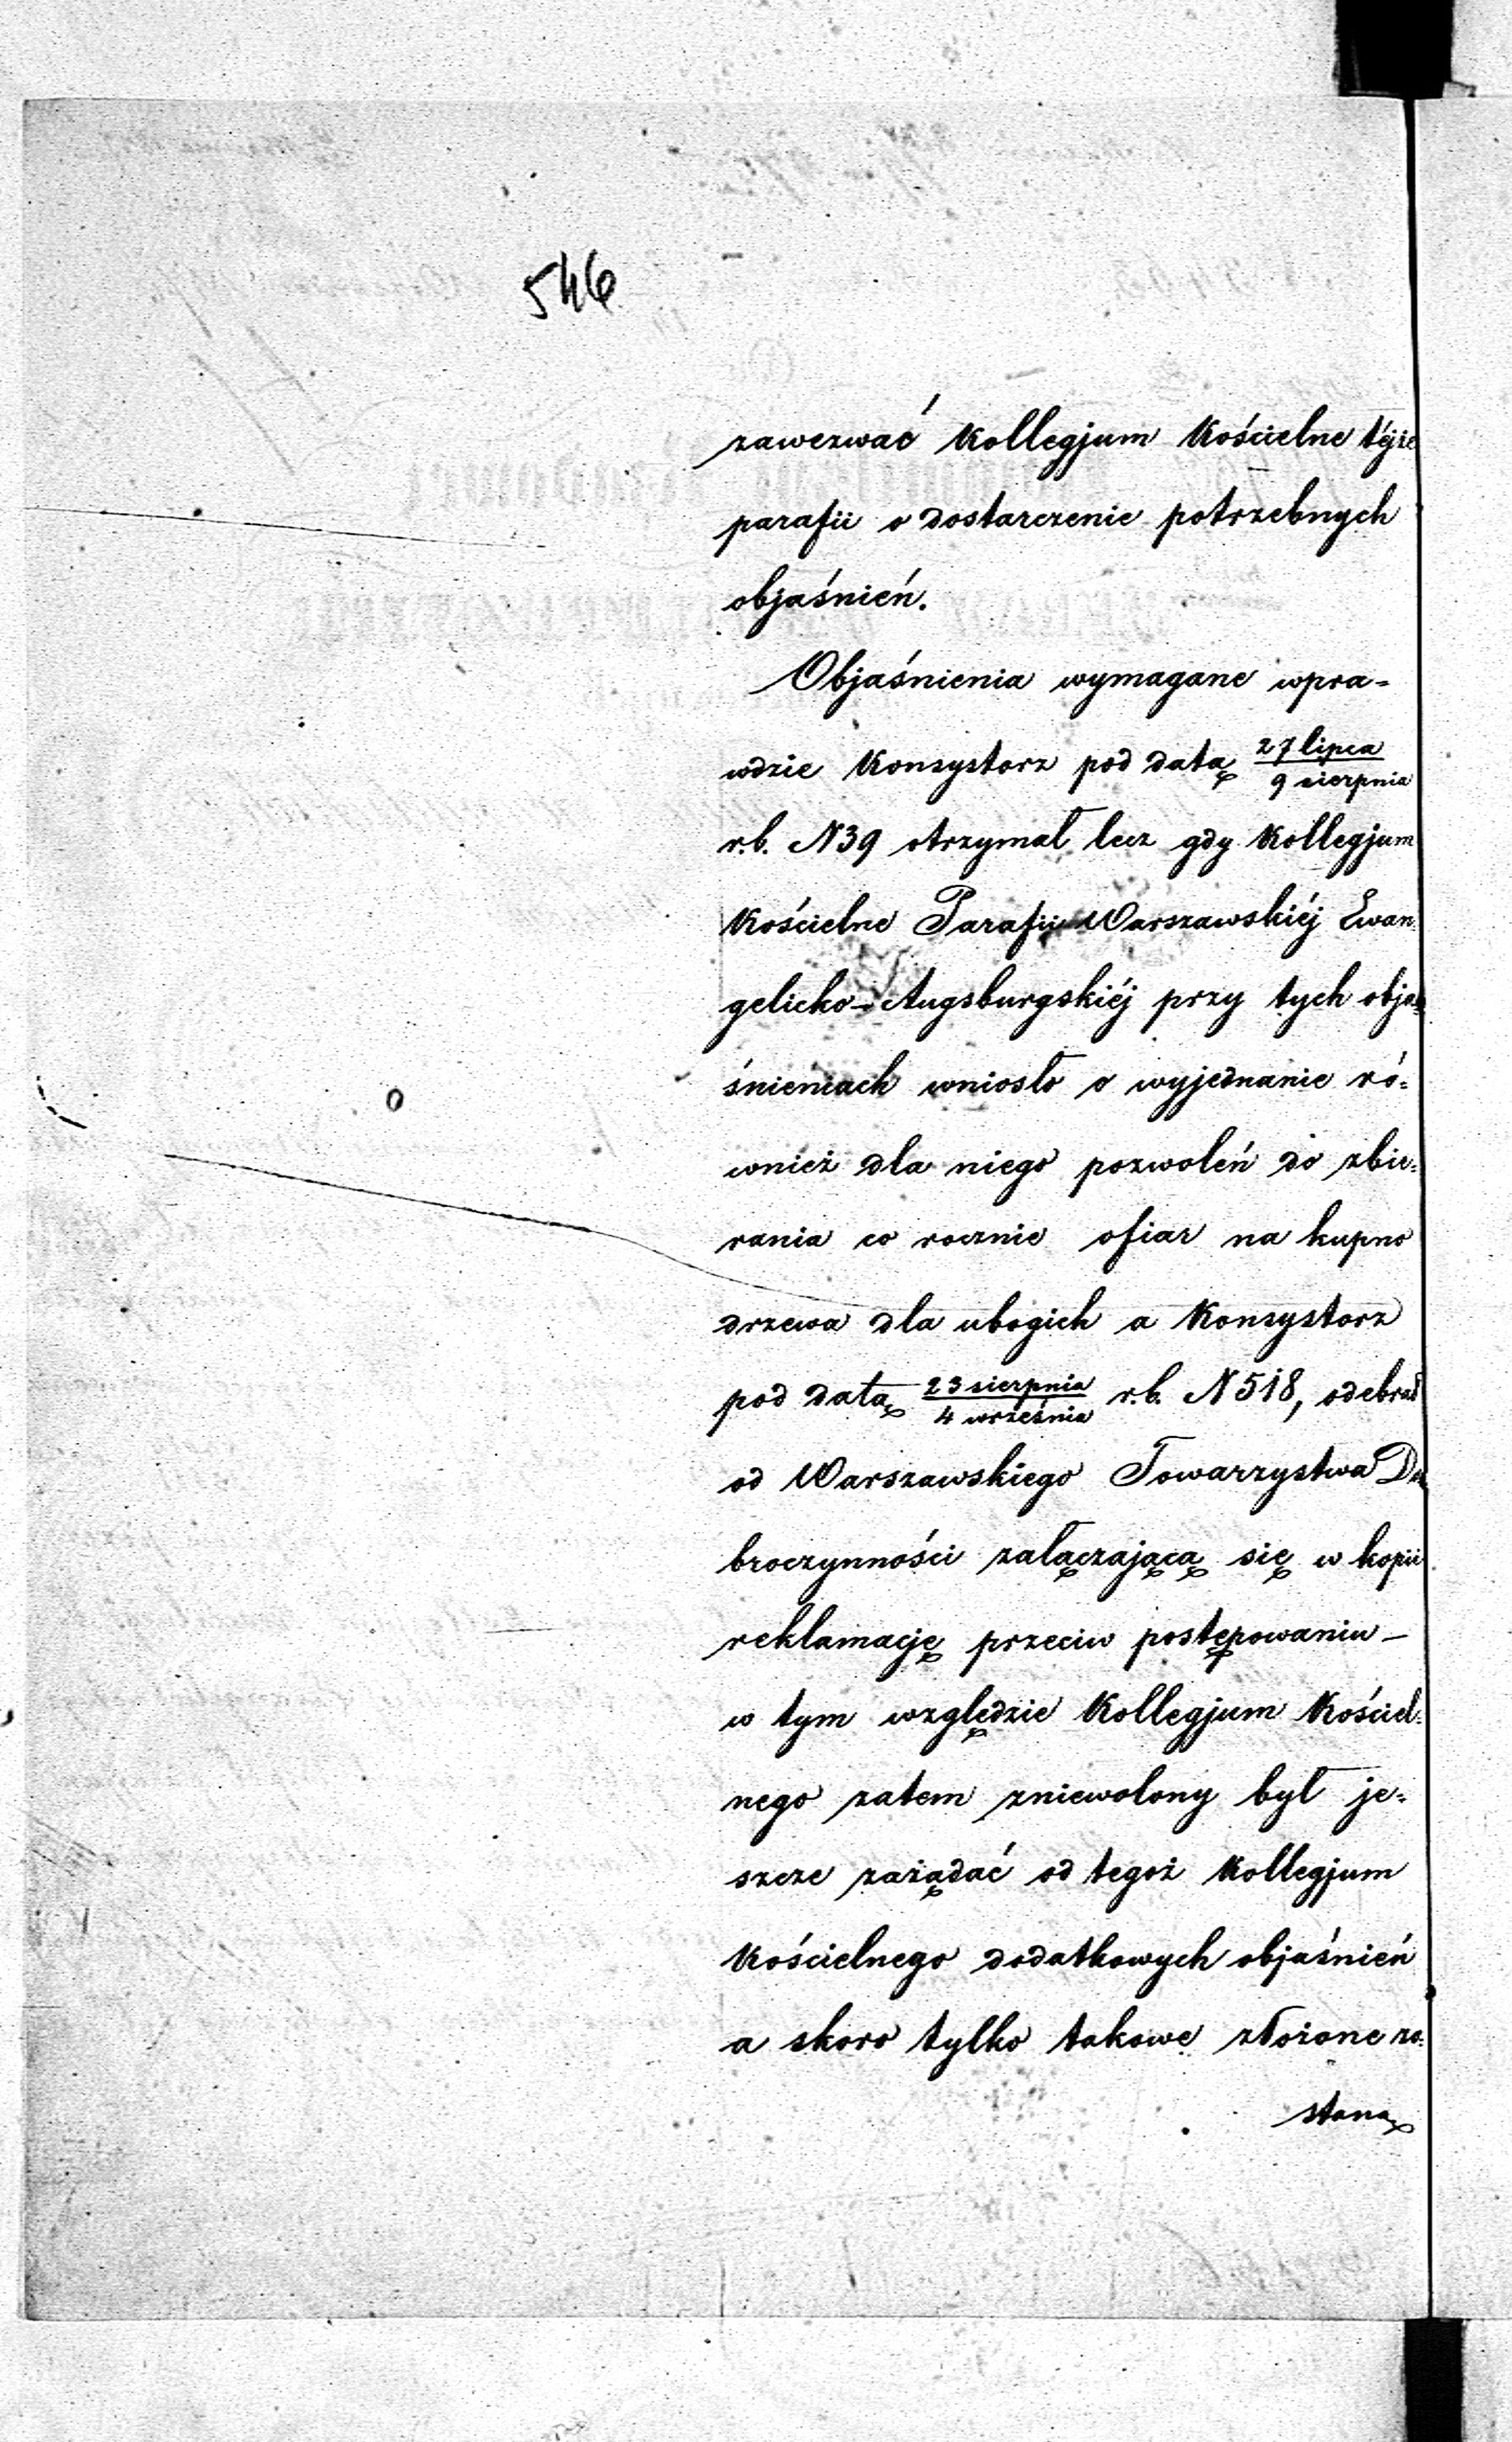 546
zawezwać Kollegjum Kościelne téjże
parafii o dostarczenie potrzebnych
objaśnień.
Objaśnienia wymagane wpra-
wdzie Konsystorz pod datą 27 lipca / 9 sierpnia
r.b. N 39 otrzymał lecz gdy Kollegjum
Kościelne Parafii Warszawskiéj Ewan-
gelicko-Augsburgskiéj przy tych obja-
śnieniach wniosło o wyjednanie ró-
wnież dla niego pozwoleń do zbie-
rania co rocznie ofiar na kupno
drzewa dla ubogich a Konsystorz
pod datą 23 sierpnia / 4 września r.b. N 518, odebrał
od Warszawskiego Towarzystwa Do
broczynności załączającą się w kopii
reklamację przeciw postępowaniu –
w tym względzie Kollegjum Kościel-
nego zatem zniewolony był je-
szcze zażądać od tegoż Kollegjum
Kościelnego dodatkowych objaśnień
a skoro tylko takowe złożone zo-
staną